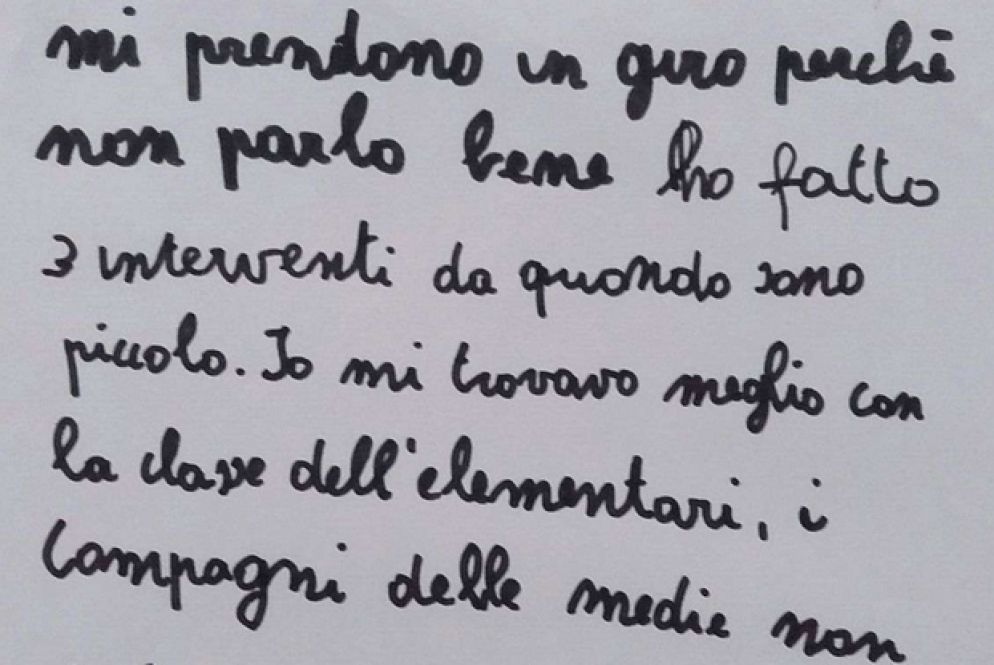 mi prendono in giro perchè
non parlo bene ho fatto
3 interventi da quando sono
piccolo. Io mi trovavo meglio con
la classe dell'elementari, i
compagni delle medie non